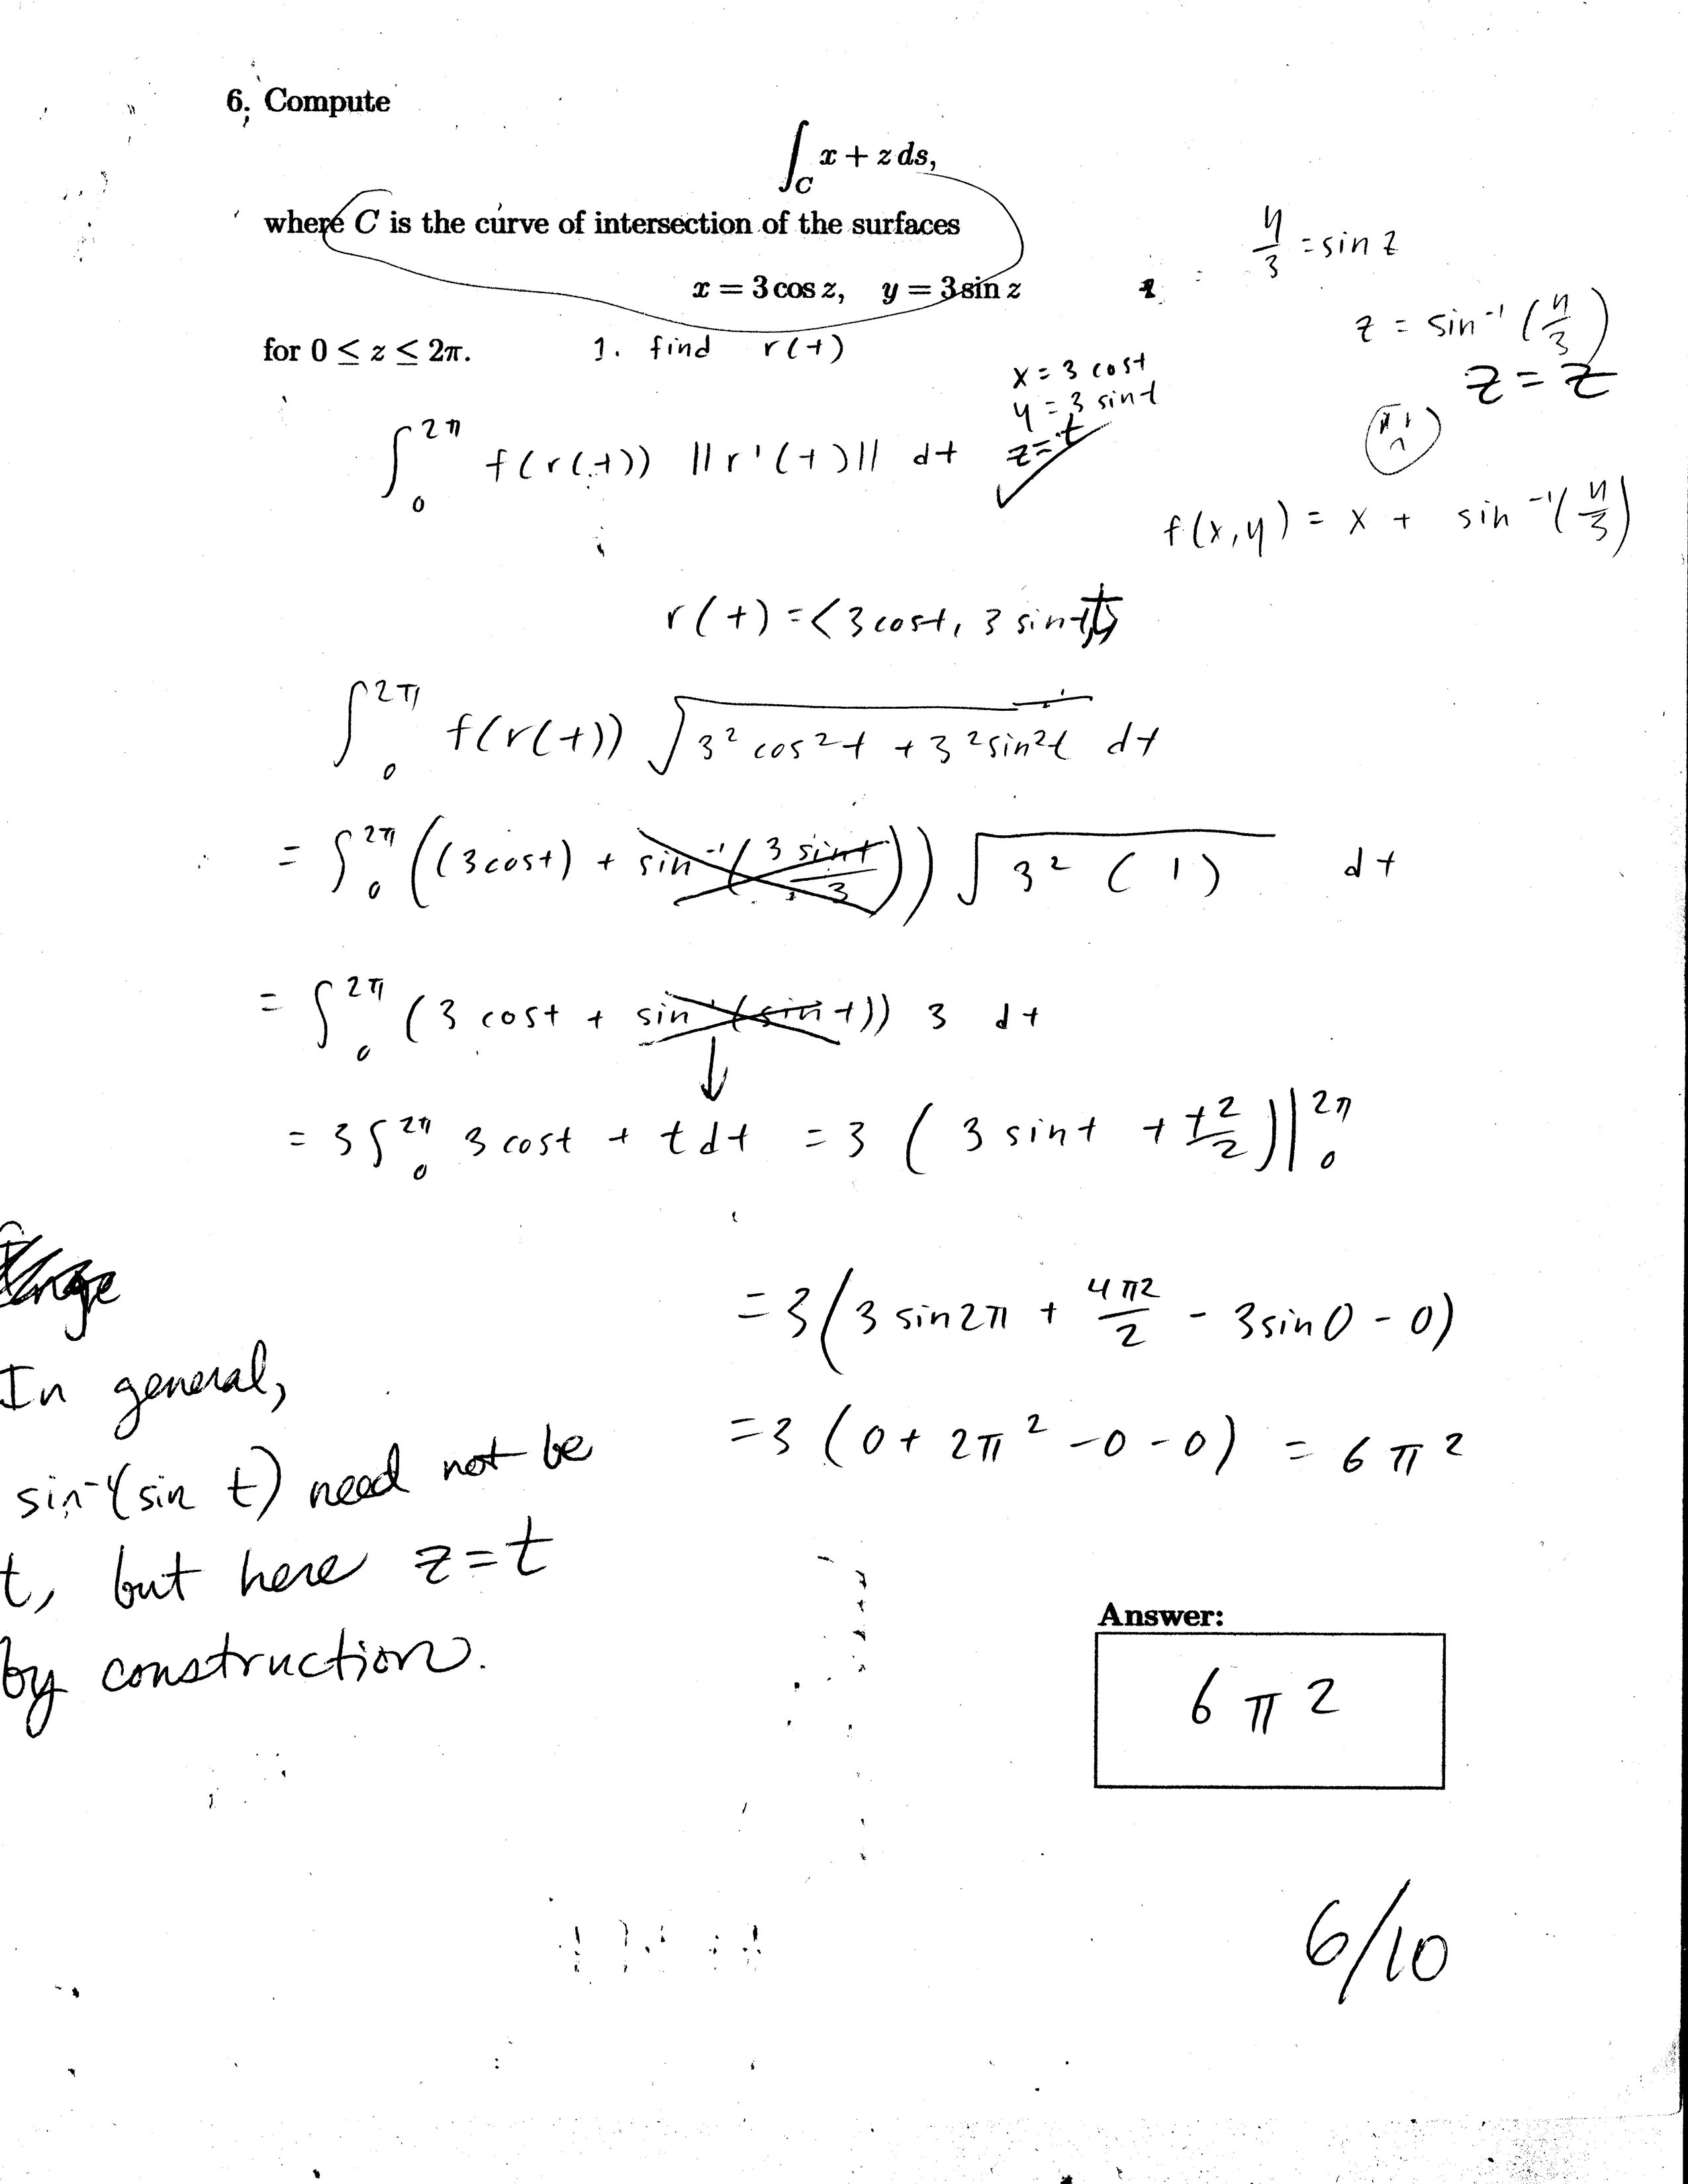 6. Compute
∫_C x + z ds,
where C is the curve of intersection of the surfaces
x = 3 cos z, y = 3 sin z
for 0 ≤ z ≤ 2π.
y/3 = sin z
z = sin⁻¹(y/3)
z = z
1. find r(t)
x = 3 cost
y = 3 sint
z = t
∫₀^2π f(r(t)) ||r'(t)|| dt
f(x,y) = x + sin⁻¹(y/3)
r(t) = <3 cost, 3 sint, t>
∫₀^2π f(r(t)) √(3² cos²t + 3² sin²t) dt
= ∫₀^2π ((3cost) + sin⁻¹(3 sint/3)) √(3² (1)) dt
= ∫₀^2π (3 cost + sin⁻¹(sint)) 3 dt
↓
= 3∫₀^2π 3 cost + t dt = 3 (3 sint + t²/2)|₀^2π
= 3(3 sin2π + 4π²/2 - 3sin0 - 0)
= 3 (0 + 2π² - 0 - 0) = 6π²
In general,
sin⁻¹(sin t) need not be
t, but here z=t
by construction.
Answer:
6π²
6/10